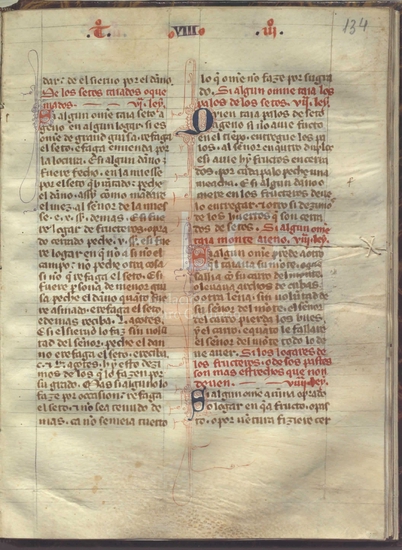 t. VIII iij. 134
dar: de el sieruo por el daño.
De los setos taiados o que
mados. vj. ley.
Si algun ome taia seto a
geno en algun logar si es
ome de grand guisa refaga
el seto. τ faga emienda por
la locura. E si algun daño
fuere fecho en la miesse
por el seto
el dano
el iuez al señor de la mies
se. demas. E si fue
re logar de fructeros. o pra
do cerrado peche. E si fue
re logar en q no a si no el
campo: no peche otra cosa
si no q refaga el seto. E si
fuere psona de menor gui
sa. peche el daño
re asmado. τ refaga el seto.
τ demas reciba. L. açotes.
E si el sieruo lo faz sin uolū
tad del señor. peche el dan
no τ refaga el seto. τ reciba
c. τ açotes. E esto dezi
mos de los q lo fazen por
su grado. Mas si alguno lo
faze por occasion: refaga
el seto. τ no sea tenudo de
mas. ca no meicia cuerto
lo q ome no faze por su gra
do. Si algun ome taia los
palos de los setos. vij. ley.
Quien taia palos de seto
ageno si no auie fructo
en el tiepo. entregue los pa
los. al señor en quatro duplo:
e si auie hy fructos encerra
dos. por cada palo peche una
meaia. E si algun daño
ome en los fructeros deue
lo entregar. τ otrosi dezimos
de los huertos q son cerra
dos de setos. Si algun ome
taia monte aieno. viij. ley.
Si algun ome
q taia en su mote. o que
saca
o lleua aros de cubas.
o otra lena. sin uoluntad de
su señor del mote. el señor
del carro pierda los bues
y el carro. τ quanto le fallare
el señor del mote todo lo de
ue auer. Si los logares de
los fructeros. o de los pastos
son mas estrechos que non
deuen. viiij. ley.
Si algun ome a uina o prado
o logar en q a fructo. o pas
to. o por uentura fizo le cer